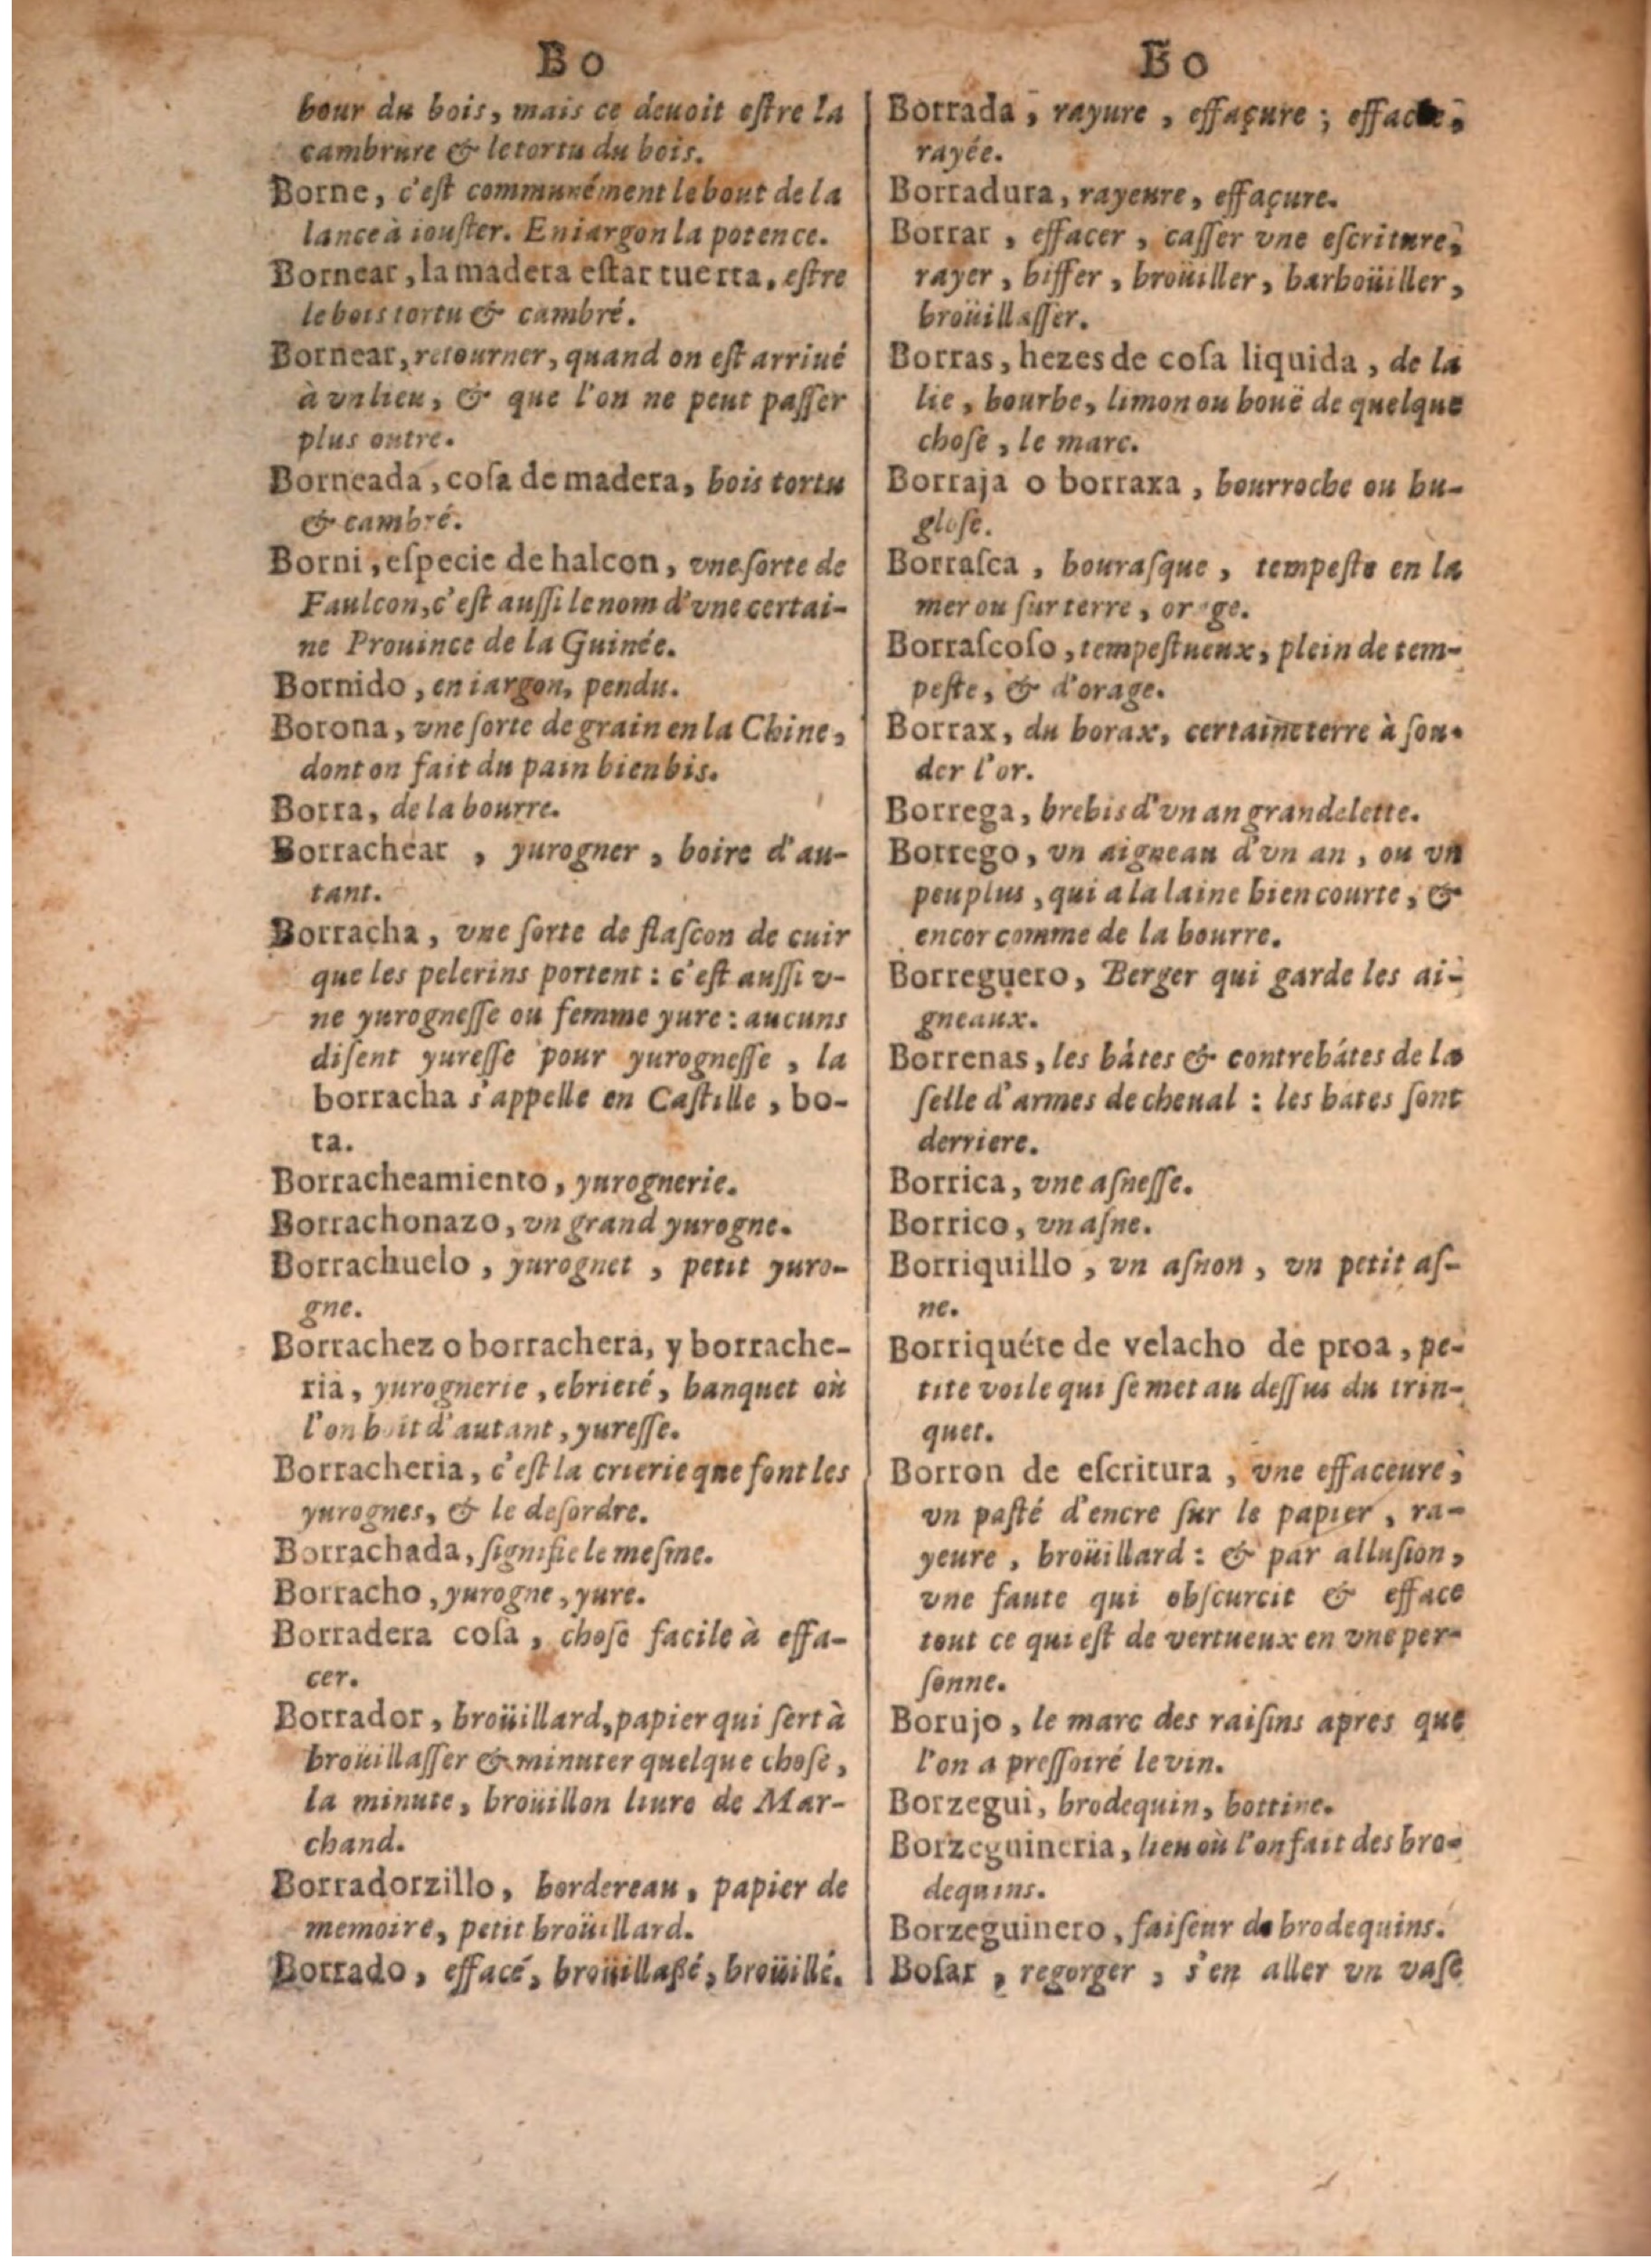 Bo
bour du bois, mais ce deuoit eſtre la
cambrure & le tortu du bois.
Borne, c'eſt communément le bout de la
lance à iouſter. En iargon la potence.
Bornear, la madera eſtar tuerta, eſtre
le bois tortu & cambré.
Bornear, retourner, quand on eſt arriué
à vn lieu, & que l'on ne peut paſſer
plus outre.
Borneada, coſa de madera, bois tortu
& cambré.
Borni, eſpecie de halcon, vne ſorte de
Faulcon, c'eſt auſſi le nom d'vne certai-
ne Prouince de la Guinée.
Bornido, en iargon, pendu.
Borona, vne ſorte de grain en la Chine,
dont on fait du pain bien bis.
Borra, de la bourre.
Borrachear, yurogner, boire d'au-
tant.
Borracha, vne ſorte de flaſcon de cuir
que les pelerins portent : c'eſt auſſi v-
ne yurogneſſe ou femme yure : aucuns
diſent yureſſe pour yurogneſſe, la
borracha s'appelle en Caſtille, bo-
ta.
Borracheamiento, yurognerie.
Borrachonazo, vn grand yurogne.
Borrachuelo, yurognet, petit yuro-
gne.
Borrachez o borrachera, y borrache-
ria, yurognerie, ebrieté, banquet où
l'on boit d'autant, yureſſe.
Borracheria, c'eſt la crierie que font les
yurognes, & le deſordre.
Borrachada, ſignifie le meſme.
Borracho, yurogne, yure.
Borradera coſa, choſe facile à effa-
cer.
Borrador, broüillard, papier qui ſert à
broüillaſſer & minuter quelque choſe,
la minute, broüillon liure de Mar-
chand.
Borradorzillo, bordereau, papier de
memoire, petit broüillard.
Borrado, effacé, broüillaßé, broüillé.
Bo
Borrada, rayure, effaçure ; effacée,
rayée.
Borradura, rayeure, effaçure.
Borrar, effacer, caſſer vne eſcriture,
rayer, biffer, broüiller, barboüiller,
broüillaſſer.
Borras, hezes de coſa liquida, de la
lie, bourbe, limon ou bouë de quelque
choſe, le marc.
Borraja o borraxa, bourroche ou bu-
gloſe.
Borraſca, bouraſque, tempeſte en la
mer ou ſur terre, orage.
Borraſcoſo, tempeſtueux, plein de tem-
peſte, & d'orage.
Borrax, du borax, certaine terre à ſou-
der l'or.
Borrega, brebis d'vn an grandelette.
Borrego, vn aigneau d'vn an, ou vn
peu plus, qui a la laine bien courte, &
encor comme de la bourre.
Borreguero, Berger qui garde les ai-
gneaux.
Borrenas, les bâtes & contrebâtes de la
ſelle d'armes de cheual : les bates ſont
derriere.
Borrica, vne aſneſſe.
Borrico, vn aſne.
Borriquillo, vn aſnon, vn petit aſ-
ne.
Borriquéte de velacho de proa, pe-
tite voile qui ſe met au deſſus du trin-
quet.
Borron de eſcritura, vne effaceure,
vn paſté d'encre ſur le papier, ra-
yeure, broüillard : & par alluſion,
vne faute qui obſcurcit & efface
tout ce qui eſt de vertueux en vne per-
ſonne.
Borujo, le marc des raiſins apres que
l'on a preſſoiré le vin.
Borzegui, brodequin, bottine.
Borzeguineria, lieu où l'on fait des bro-
dequins.
Borzeguinero, faiſeur de brodequins.
Boſar, regorger, s'en aller vn vaſe